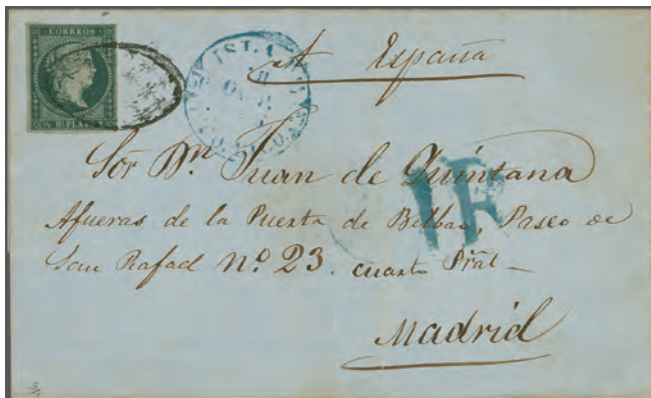 CORREOS
½ Rl. PLATA F.
ISLA
España
Sor Dn Juan de Quintana
1R
Afueras de la Puerta de Bilbao, Paseo de
San Rafael nº 23. cuarto Pral
Madrid